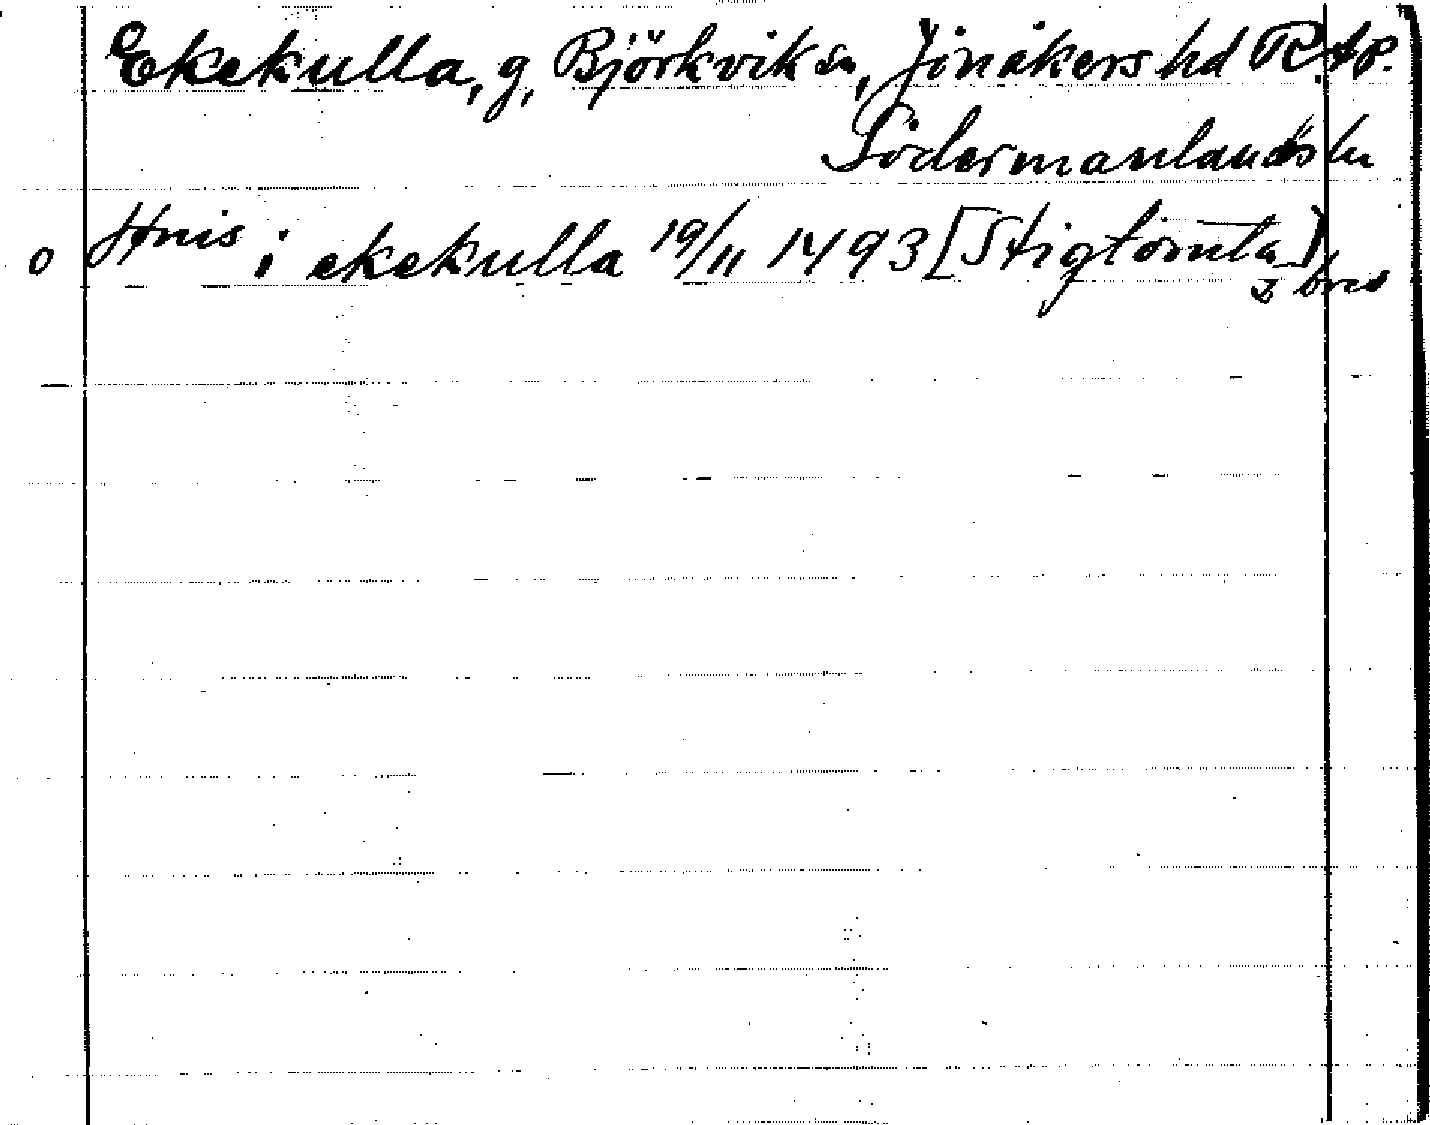 Ekekulla, g, Björkvik sn, Jönåkers hd R.Ap.
Södermanlands ln
o Jönis i ekekulla 19/11 1493 [Stigtomta]
bred